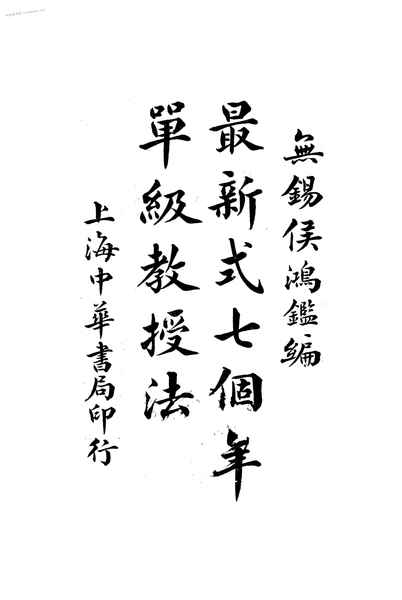 無錫侯鴻鑑編
最新式七個年
單級教授法
上海中華書局印行